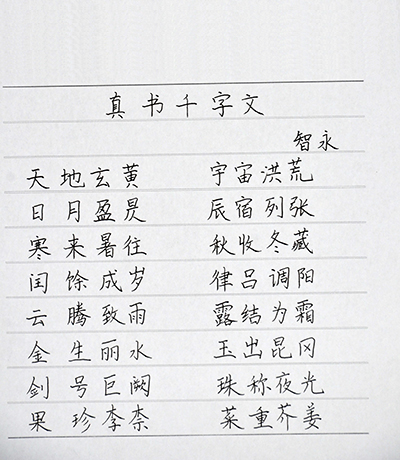 真书千字文
智永
天地玄黄 宇宙洪荒
日月盈昃 辰宿列张
寒来暑往 秋收冬藏
闰馀成岁 律吕调阳
云腾致雨 露结为霜
金生丽水 玉出昆冈
剑号巨阙 珠称夜光
果珍李柰 菜重芥姜